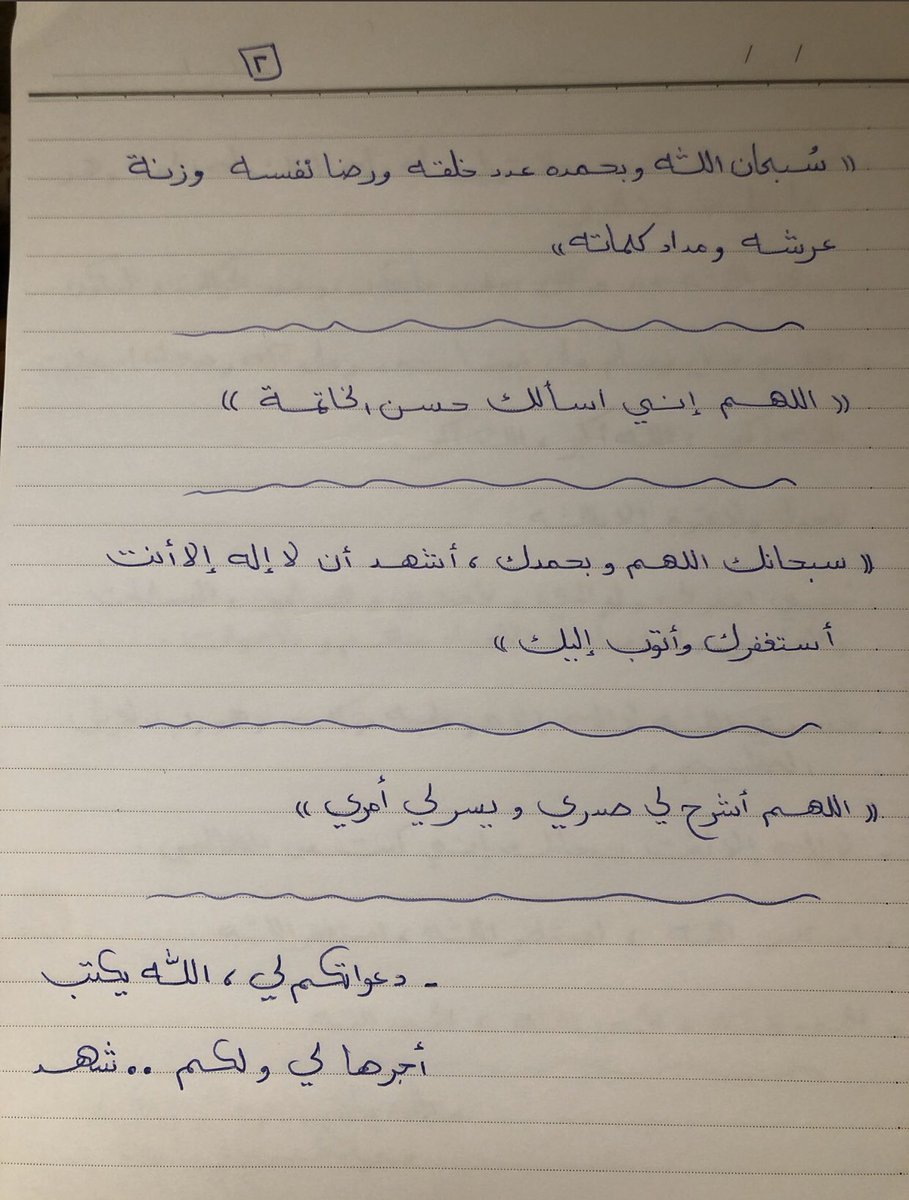 ٢
/ /
« سُبحان اللّٰه وبحمده عدد خلقه ورضا نفسه وزنة
عرشه ومداد كلماته »
« اللهم إنني اسألك حسن الخاتمة »
« سبحانك اللهم وبحمدك ، أشهد أن لا إله إلا أنت
أستغفرك وأتوب إليك »
« اللهم أشرح لي صدري ويسر لي أمري »
- دعواتكم لي ، اللّٰه يكتب
أجرها لي ولكم .. شهد